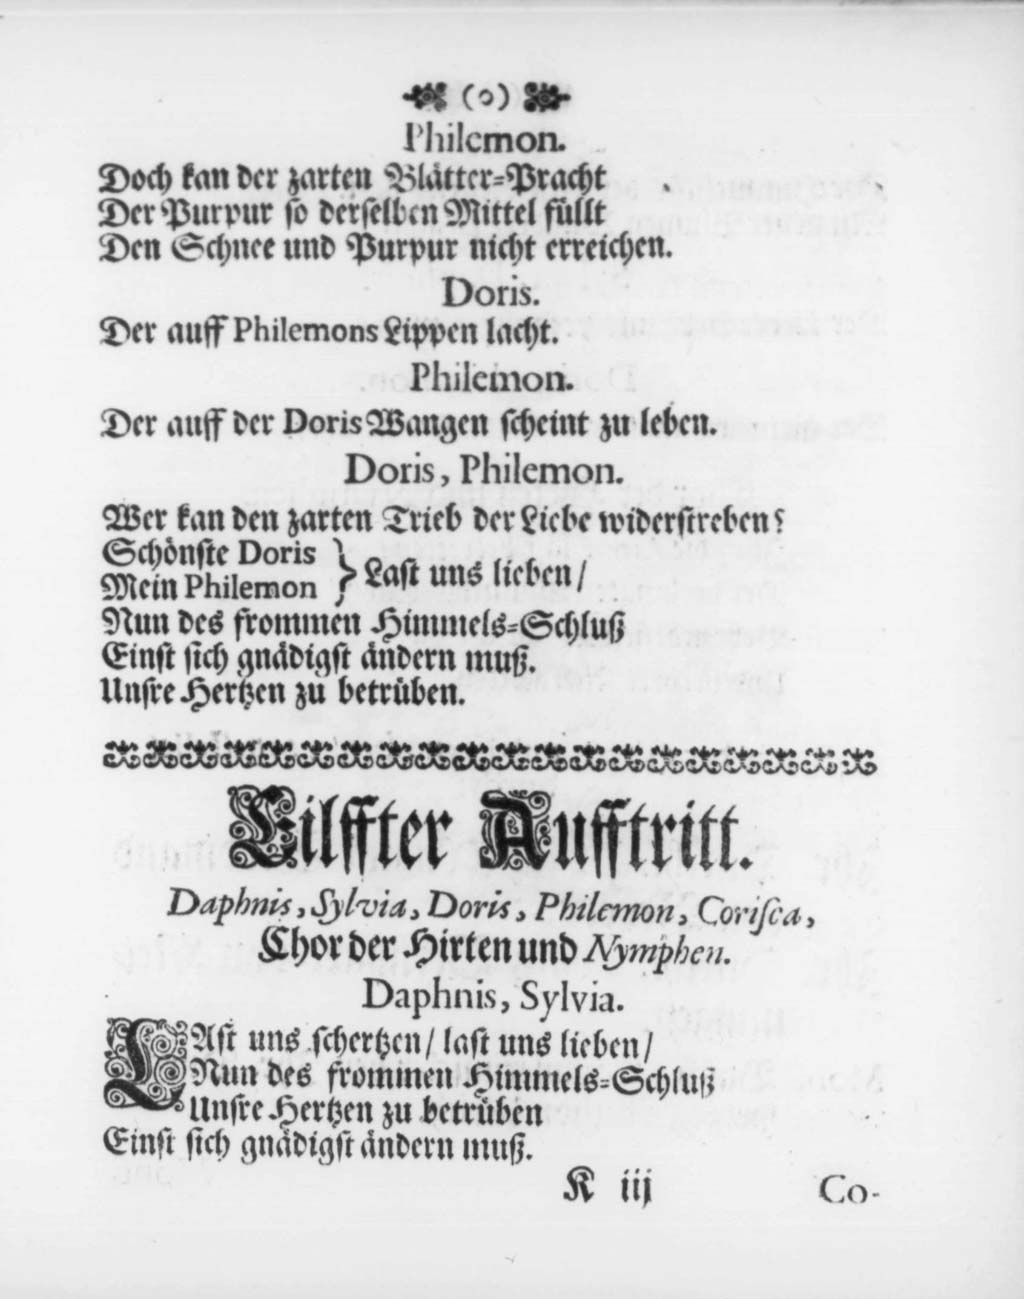 (o)
Philemon.
Doch kan der zarten Blätter-Pracht
Der Purpur so derselben Mittel füllt
Den Schnee und Purpur nicht erreichen.
Doris.
Der auff Philemons Lippen lacht.
Philemon.
Der auff der Doris Wangen scheint zu leben.
Doris, Philemon.
Wer kan den zarten Trieb der Liebe widerstreben?
Schönste Doris
Mein Philemon } Last uns lieben/
Nun des frommen Himmels-Schluß
Einst sich gnädigst ändern muß.
Unsre Hertzen zu betrüben.
Eilffter Aufftritt.
Daphnis, Sylvia, Doris, Philemon, Corisca,
Chor der Hirten und Nymphen.
Daphnis, Sylvia.
LAst uns schertzen/ last uns lieben/
Nun des frommen Himmels-Schluß
Unsre Hertzen zu betrüben
Einst sich gnädigst ändern muß.
K iij Co-